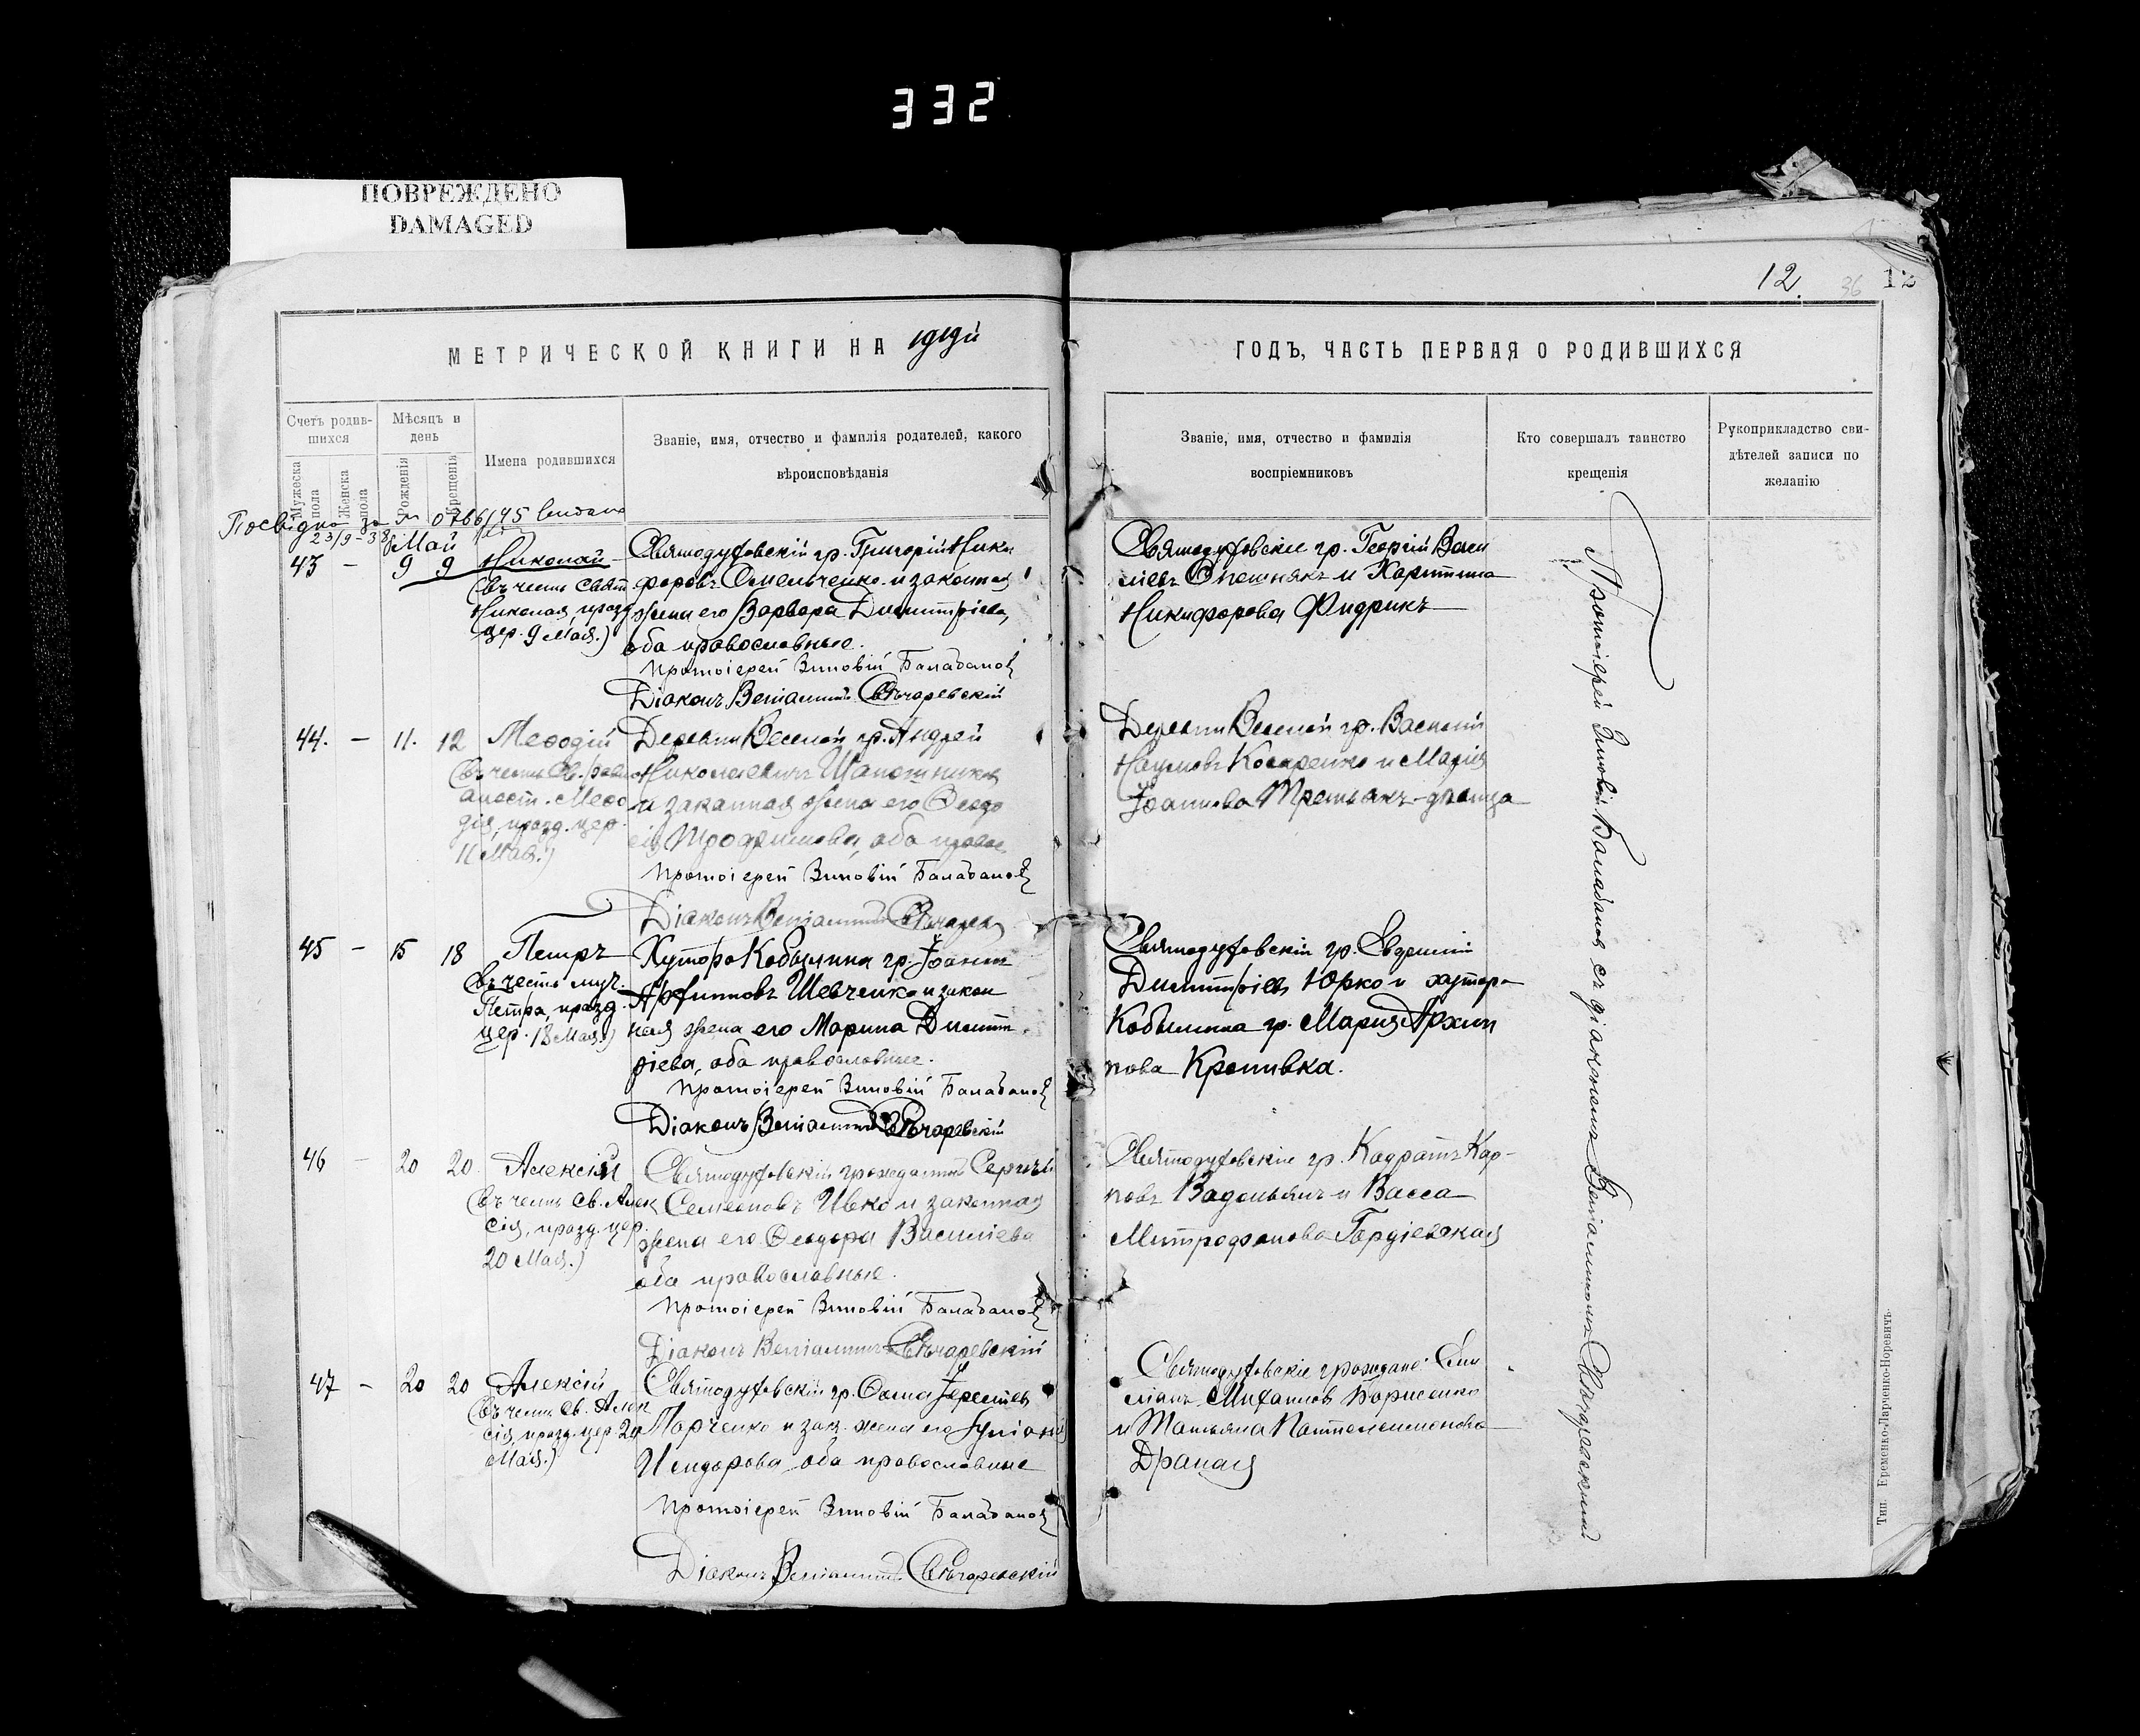 332
ПОВРЕЖДЕНО
DAMAGED
12.
36
12
МЕТРИЧЕСКОЙ КНИГИ НА
ГОДЪ, ЧАСТЬ ПЕРВАЯ О РОДИВШИХСЯ
Счетъ родив-
шихся
Мужеска
пола
Женска
пола
Мѣсяцъ и
день
Рожденія
Крещенія
Имена родившихся
Званіе, имя, отчество и фамилія родителей, какого
вѣроисповѣданія
Званіе, имя, отчество и фамилія
воспріемниковъ
Кто совершалъ таинство
крещенія
Рукоприкладство сви-
дѣтелей записи по
желанію
23/9-38
Май
43 - 9 9 Николай
(въ честь Свят.
Николая, празд.
цер. 9 Мая.)
Святодуховскій гр. Григорій Ники
форовъ Омельченко и законная
жена его Варвара Димитріева,
оба православные.
Протоіерей Зиновій Балабановъ
Діаконъ Веніаминъ
Святодуховскіе гр. Георгій Васи
ліевъ и Харитина
Никифорова Фидрикъ
44. - 11. 12 Меѳодій
(въ честь Св. равно
апост. Меѳо
дія, празд. цер.
11 Мая.)
Деревни Веселой гр. Андрей
Николаевичъ
и законная жена его Ѳеодо
сія Трофимова, оба правос.
Протоіерей Зиновій Балабановъ
Діаконъ Веніаминъ
Деревни Веселой гр. Василій
Наумовъ Косаренко и Марія
Іоаннова Третьякъ-девица
45 - 15 18 Петръ
(въ честь муч.
Петра, празд.
цер. 18 Мая.)
Хутора Кобылина гр. Іоаннъ
Архиповъ Шевченко и закон
ная жена его Марина Димит
ріева, оба православные.
Протоіерей Зиновій Балабановъ
Діаконъ Веніаминъ
Святодуховскій гр. Евфимій
Димитріевъ Юрко и хутора
Кобылина гр. Мария Архип
пова Кропивка.
46 - 20 20 Алексій
(въ честь Св. Алек
сія, празд. цер.
20 Мая.)
Святодуховскій гражданинъ Сергій
Семеоновъ Ивко и законная
жена его Ѳеодора Василіева
оба православные.
Протоіерей Зиновій Балабановъ
Діаконъ Веніаминъ
Святодуховскіе гр. Кодратъ Кар-
повъ и Васса
Митрофанова Гордіевская
47 - 20 20 Алексій
(въ честь Св. Алек
сія, празд. цер. 20
Мая.)
Святодуховскій гр. Ѳома Іереміевъ
Марченко и зак. жена его Іуліанія
Исидорова, оба православные
Протоіерей Зиновій Балабановъ
Діаконъ Веніаминъ
Святодуховскіе граждане: Еми
ліанъ Михаиловъ Борисенко
и Татьяна Пантелеимонова
Драная
Протоіерей Зиновій Балабановъ съ діакономъ Веніаминомъ
Тип. Еременко-Ларченко-Норевичъ.